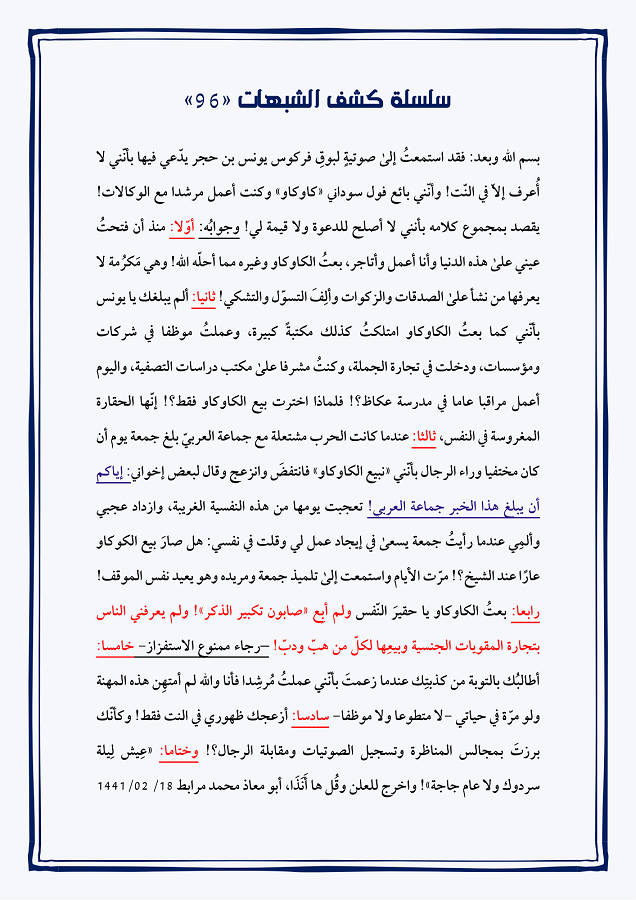 سلسلة كشف الشبهات «96»
بسم الله وبعد: فقد استمعتُ إلىٰ صوتيةٍ لبوقِ فركوس يونس بن حجر يدّعي فيها بأنّني لا
أُعرف إلاّ في النّت! وأنّني بائع فول سوداني «كاوكاو» وكنت أعمل مرشدا مع الوكالات!
يقصد بمجموع كلامه بأنني لا أصلح للدعوة ولا قيمة لي! وجوابُه: أوّلا: منذ أن فتحتُ
عيني علىٰ هذه الدنيا وأنا أعمل وأتاجر، بعتُ الكاوكاو وغيره مما أحلّه الله! وهي مَكرُمة لا
يعرفها من نشأ علىٰ الصدقات والزكوات وألِفَ التسوّل والتشكي! ثانيا: ألم يبلغك يا يونس
بأنّني كما بعتُ الكاوكاو امتلكتُ كذلك مكتبةً كبيرة، وعملتُ موظفا في شركات
ومؤسسات، ودخلت في تجارة الجملة، وكنتُ مشرفا علىٰ مكتب دراسات التصفية، واليوم
أعمل مراقبا عاما في مدرسة عكاظ؟! فلماذا اخترت بيع الكاوكاو فقط؟! إنّها الحقارة
المغروسة في النفس، ثالثا: عندما كانت الحرب مشتعلة مع جماعة العربيّ بلغ جمعة يوم أن
كان مختفيا وراء الرجال بأنّني «نبيع الكاوكاو» فانتفضَ وانزعج وقال لبعض إخواني: إياكم
أن يبلغ هذا الخبر جماعة العربي! تعجبت يومها من هذه النفسية الغريبة، وازداد عجبي
وألمِي عندما رأيتُ جمعة يسعىٰ في إيجاد عمل لي وقلت في نفسي: هل صارَ بيع الكوكاو
عارًا عند الشيخ؟! مرّت الأيام واستمعت إلىٰ تلميذ جمعة ومريده وهو يعيد نفس الموقف!
رابعا: بعتُ الكاوكاو يا حقيرَ النّفس ولم أبع «صابون تكبير الذكر»! ولم يعرفني الناس
بتجارة المقويات الجنسية وبيعِها لكلّ من هبّ ودبّ! –رجاء ممنوع الاستفزاز– خامسا:
أطالبُك بالتوبة من كذبتِك عندما زعمتَ بأنّني عملتُ مُرشِدا فأنا والله لم أمتهِن هذه المهنة
ولو مرّة في حياتي –لا متطوعا ولا موظفا– سادسا: أزعجك ظهوري في النت فقط! وكأنّك
برزتَ بمجالس المناظرة وتسجيل الصوتيات ومقابلة الرجال؟! وختاما: «عِيش لِيلة
سردوك ولا عام جاجة»! واخرج للعلن وقُل ها أنَذَا، أبو معاذ محمد مرابط 18/ 02/ 1441